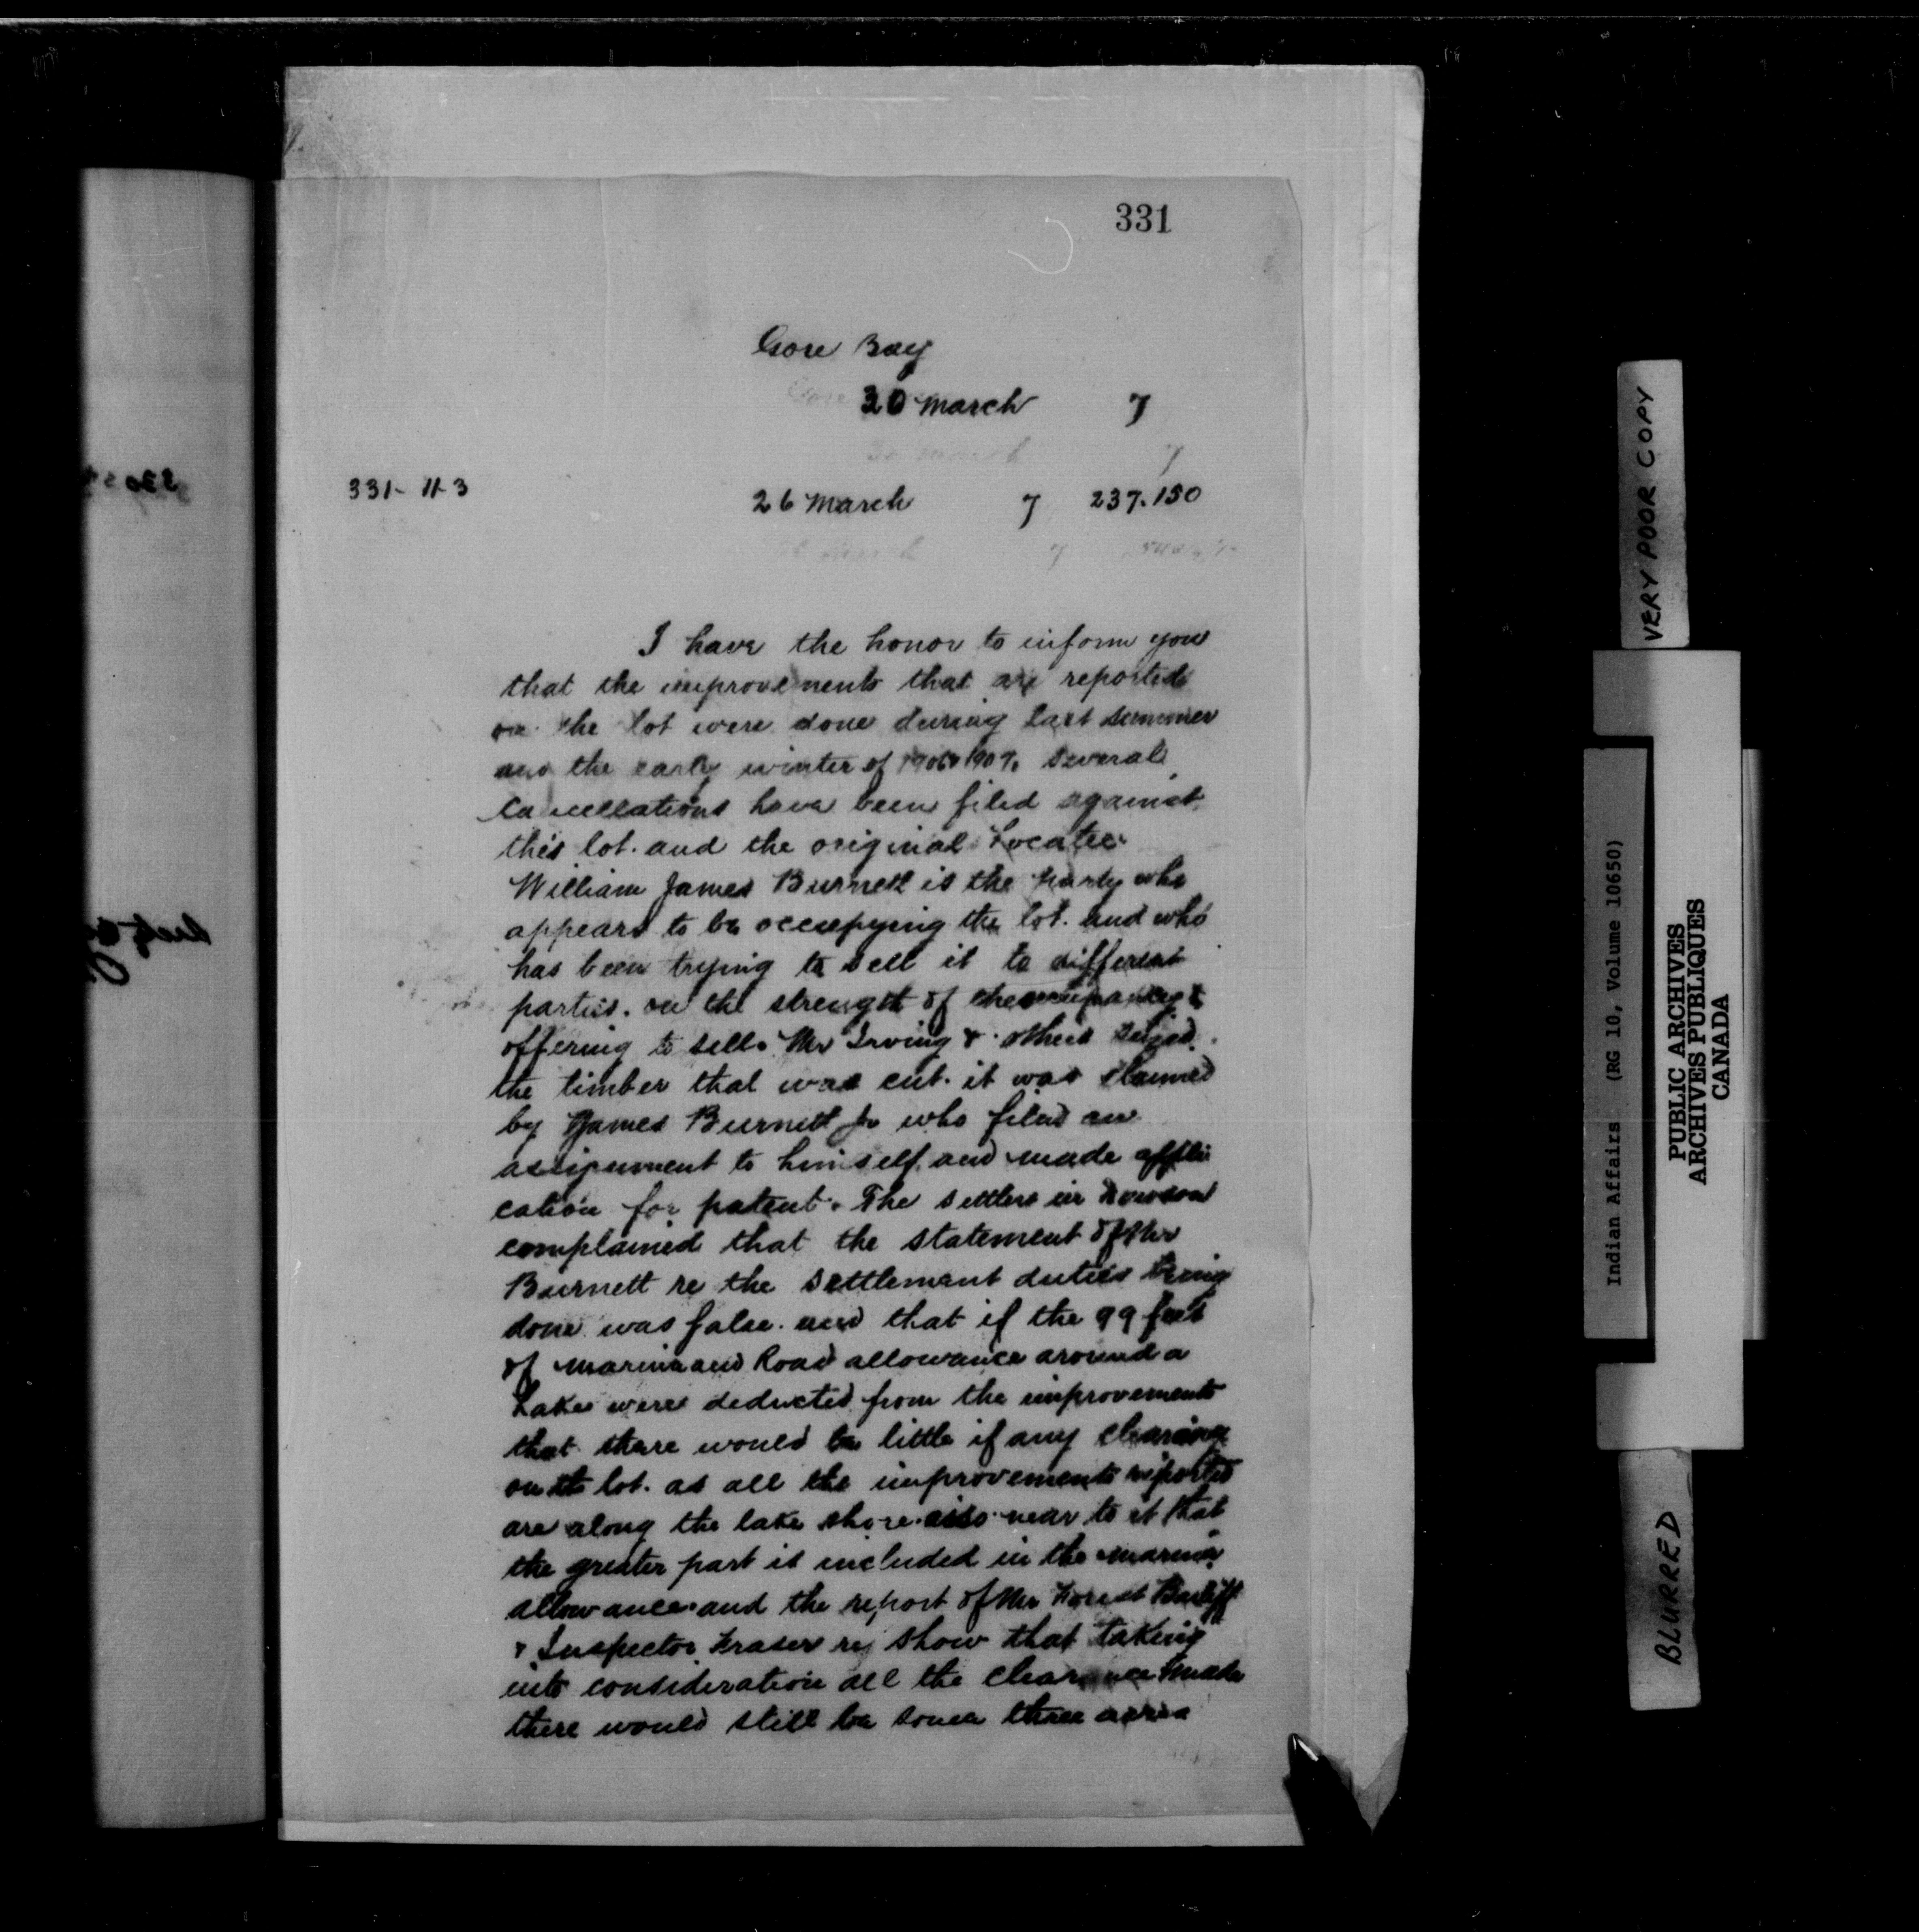 331
Gore Bay
30 March 7
331-11-3
26 March 7 237.150
I have the honor to inform you
that the improvements that are reported
on the lot were done during last summer
and the early winter of 1906 1907. Several
cancellations have been filed against
this lot. and the original Locatee.
William James Burnett is the party who
appears to be occupying the lot. and who
has been trying to sell it to different
parties. on the strength of the occupancy &
offering to sell. Mr Irving & others
the timber that was cut. it was claimed
by James Burnett Jr who filed an
assignment to himself and made appli
cation for patent. The settlers in
complained that the statement of Mr
Burnett re the settlement duties being
done was false. and that if the 99 feet
of marine and Road allowance around a
Lake were deducted from the improvements
that there would be little if any clearing
on the lot. as all the improvements reported
are along the lake shore. near to it that
the greater part is included in the marine
allowance. and the report of Mr Forest Bailiff
& Inspector Fraser show that taking
into consideration all the clearance made
there would still be some three acres
VERY POOR COPY
Indian Affairs. (RG 10, Volume 10650)
PUBLIC ARCHIVES
ARCHIVES PUBLIQUES
CANADA
BLURRED